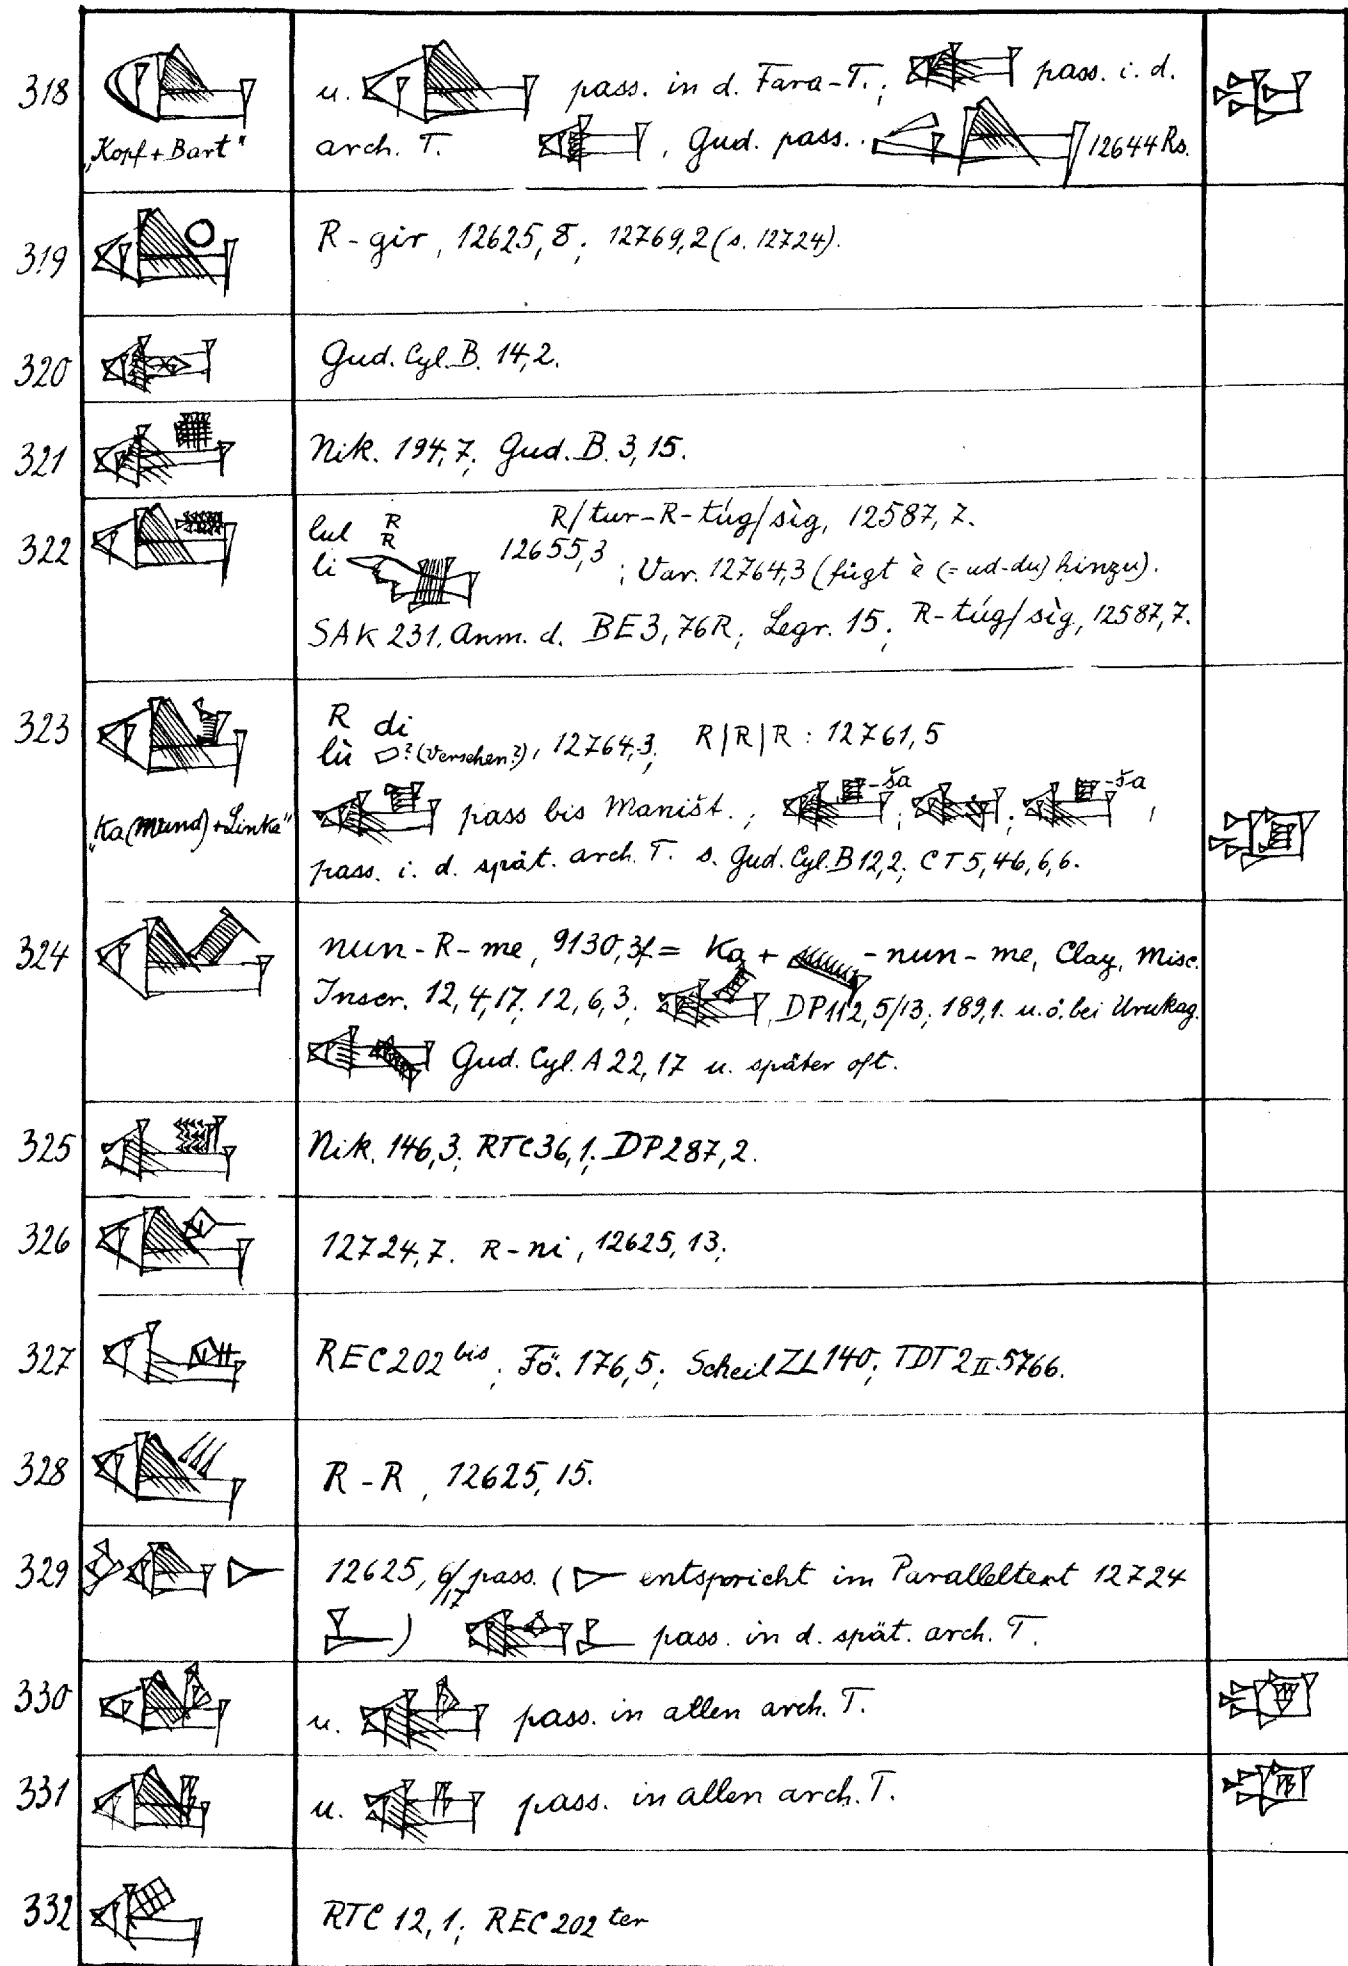 318 u. pass. in d. Fara-T.; pass. i. d.
„Kopf + Bart“ arch. T. , Gud. pass.. 12644 Rs.
319 R - gir, 12625, 8; 12769, 2 (s. 12724).
320 Gud. Cyl. B. 14, 2.
321 Nik. 194, 7; Gud. B. 3, 15.
322 lul R R/tur-R-túg/sìg, 12587, 7.
li R 12655, 3 ; Var. 12764, 3 (fügt è (= ud-du) hinzu).
SAK 231, Anm. d. BE 3, 76 R; Legr. 15; R-túg/sìg, 12587, 7.
323 R di
lù ? (Versehen?), 12764, 3; R|R|R : 12761, 5
„Ka (Mund) + Linke“ pass bis Maništ. ; -ša ; ; -ša ,
pass. i. d. spät. arch. T. s. Gud. Cyl. B 12, 2; CT 5, 46, 6, 6.
324 nun - R - me, 9130, 3f = Ka + - nun - me, Clay, Misc.
Inscr. 12, 4, 17; 12, 6, 3; , DP 112, 5/13; 189, 1. u. ö. bei Urukag.
Gud. Cyl. A 22, 17 u. später oft.
325 Nik. 146, 3; RTC 36, 1; DP 287, 2.
326 12724, 7. R - ni, 12625, 13;
327 REC 202 bis; Fö. 176, 5; Scheil ZL 140; TDT 2 II. 5766.
328 R - R, 12625, 15.
329 12625, 6/17 pass. ( entspricht im Paralleltext 12724
) pass. in d. spät. arch. T.
330 u. pass. in allen arch. T.
331 u. pass. in allen arch. T.
332 RTC 12, 1; REC 202 ter